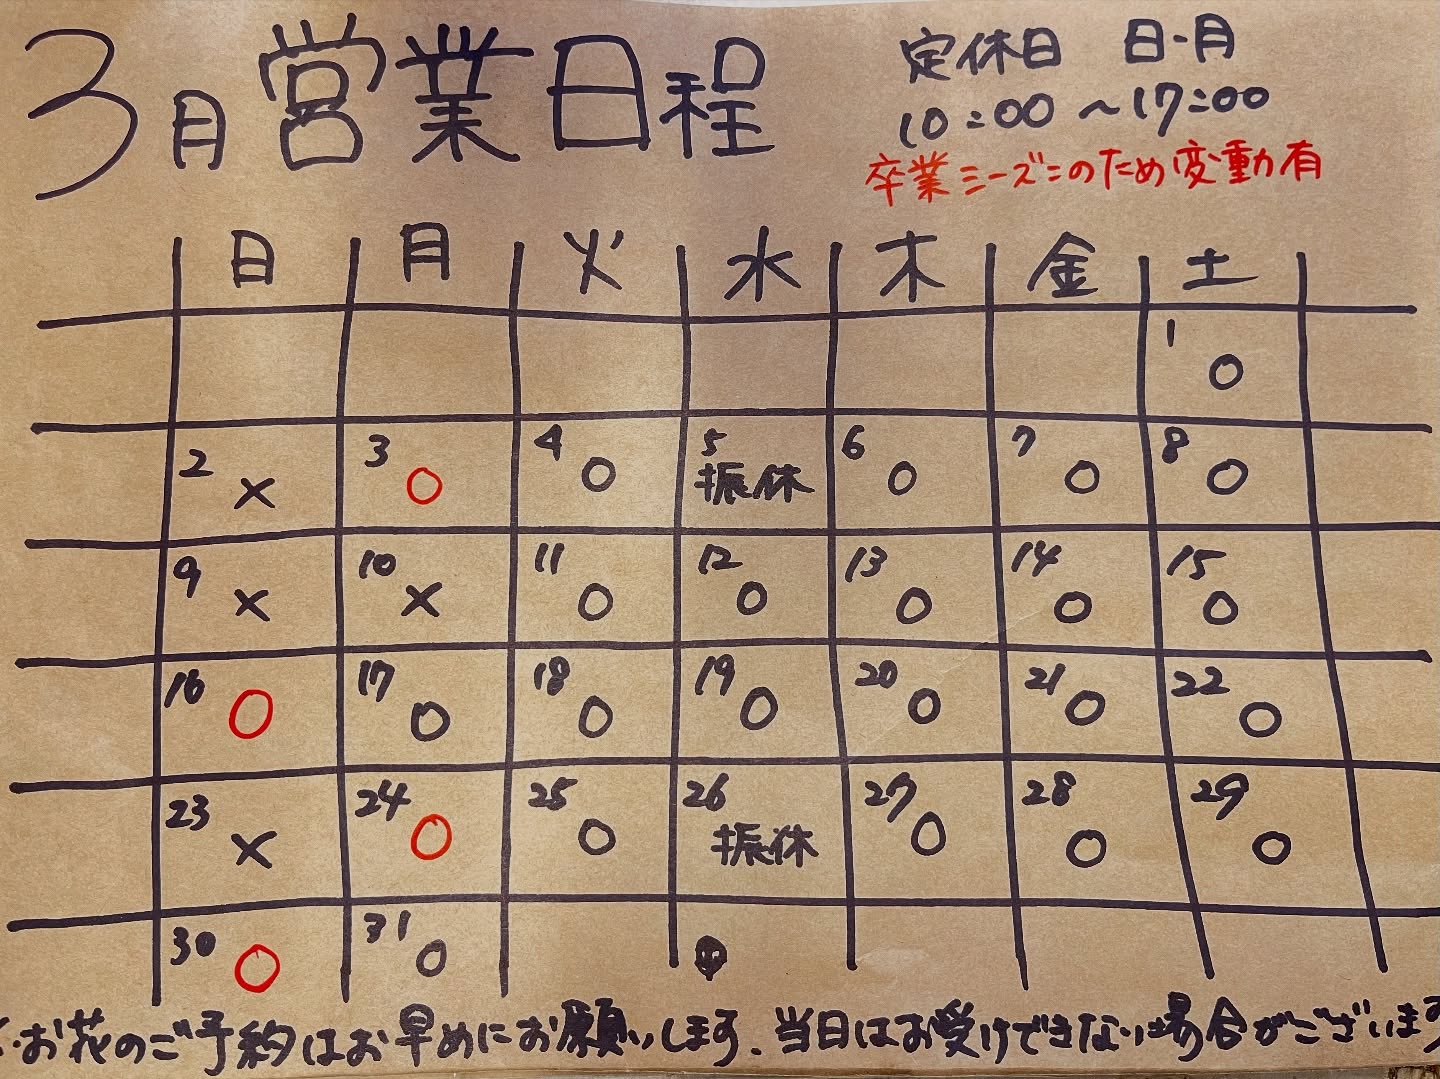 3月営業日程
定休日 日・月
10:00～17:00
卒業シーズンのため変動有
日 月 火 水 木 金 土
1 ○
2 × 3 ○ 4 ○ 5 振休 6 ○ 7 ○ 8 ○
9 × 10 × 11 ○ 12 ○ 13 ○ 14 ○ 15 ○
16 ○ 17 ○ 18 ○ 19 ○ 20 ○ 21 ○ 22 ○
23 × 24 ○ 25 ○ 26 振休 27 ○ 28 ○ 29 ○
30 ○ 31 ○
・お花のご予約はお早めにお願いします。当日はお受けできない場合がございます